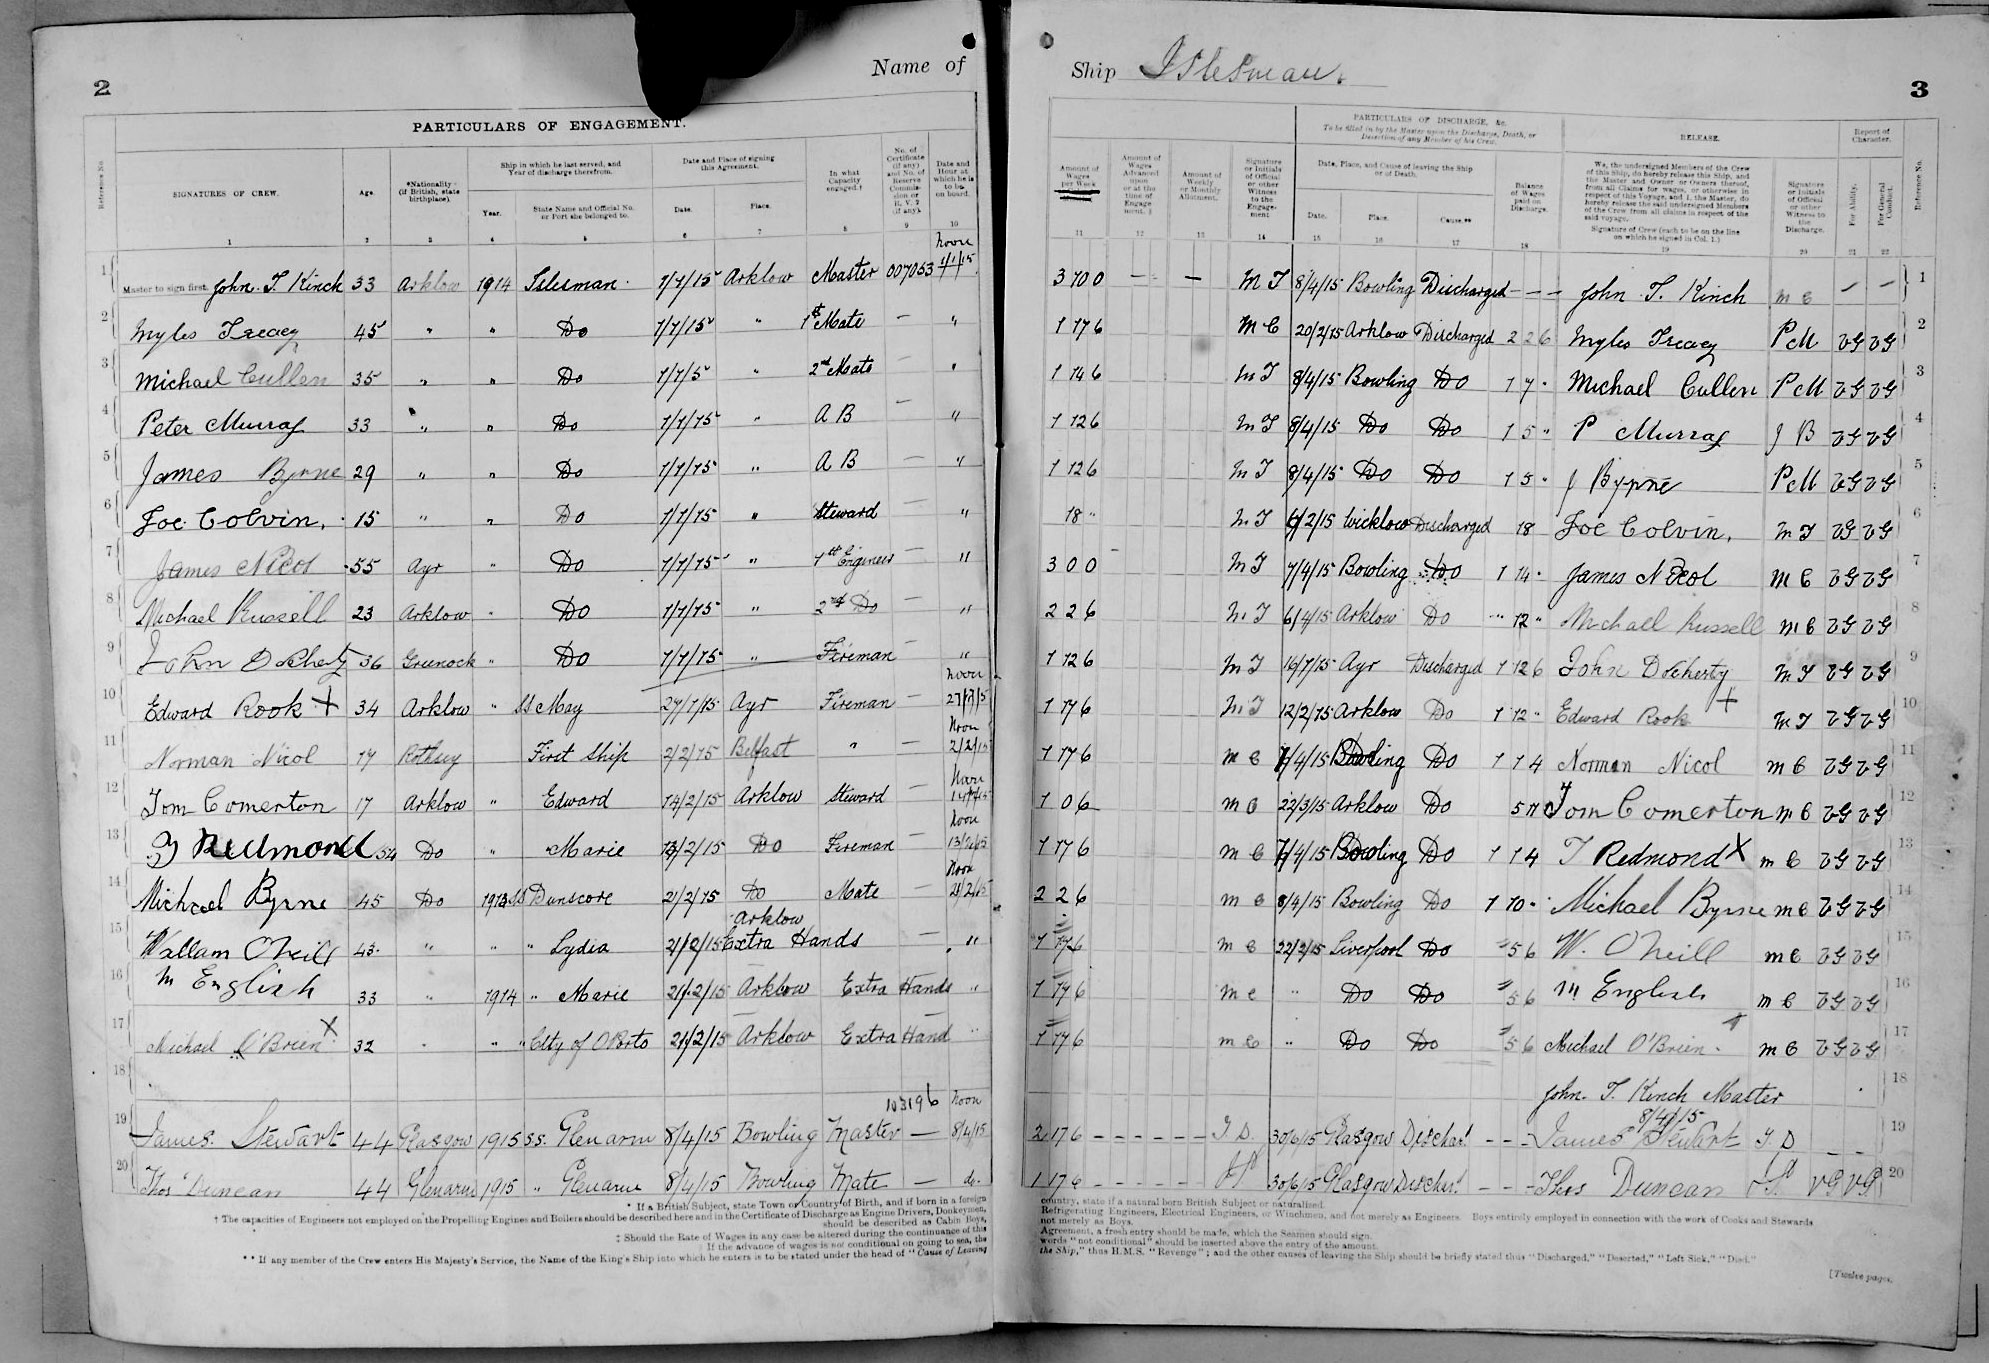 2
Name of
PARTICULARS OF ENGAGEMENT.
Reference No.
SIGNATURES OF CREW.
Age.
*Nationality (if British, state birthplace).
Ship in which he last served, and Year of discharge therefrom.
Year.
State Name and Official No. or Port she belonged to.
Date and Place of signing this Agreement.
Date.
Place.
In what Capacity engaged.†
No. of Certificate (if any) and No. of Reserve Commission or R.V.2 (if any).
Date and Hour at which he is to be on board.
1 2 3 4 5 6 7 8 9 10
noon
1 Master to sign first. John. T. Kinch 33 Arklow 1914 Islesman 1/1/15 Arklow Master 007053 1/1/15
2 Myles Treacy 45 " " Do 1/1/15 " 1st Mate — "
3 Michael Cullen 35 " " Do 1/1/5 " 2nd Mate — "
4 Peter Murray 33 " " Do 1/1/15 " A B — "
5 James Byrne 29 " " Do 1/1/15 " A B — "
6 Joe Colvin. 15 " " Do 1/1/15 " Steward "
7 James Nicol 55 Ayr " Do 1/1/15 " 1st Engineer — "
8 Michael Russell 23 Arklow " Do 1/1/15 " 2nd Do — "
9 John Docherty 36 Greenock " Do 1/1/15 " Fireman — "
noon
10 Edward Rook X 34 Arklow " SS May 27/1/15 Ayr Fireman — 27/1/15
Noon
11 Norman Nicol 17 Rothsey First Ship 2/2/15 Belfast " — 2/2/15
Noon
12 Tom Comerton 17 Arklow " Edward 14/2/15 Arklow Steward — 14/2/15
Noon
13 T Redmond 54 Do " " Marie 13/2/15 Do Fireman — 13/2/15
Noon
14 Michael Byrne 45 Do SS Dunscore 21/2/15 Do Mate — 21/2/15
Arklow
15 William O'Neill 43 " " " Lydia 21/2/15 Extra Hands — "
16 M English 33 " 1914 " Marie 21/2/15 Arklow Extra Hands "
17 Michael O'Brien X 32 " " " City of OPorto 21/2/15 Arklow Extra Hand "
18
103196 noon
19 James. Stewart 44 Glasgow 1915 SS. Glenarm 8/4/15 Bowling Master — 8/4/15
20 Thos Duncan 44 Glenarm 1915 " Glenarm 8/4/15 Bowling Mate — do.
* If a British Subject, state Town or Country of Birth, and if born in a foreign
† The capacities of Engineers not employed on the Propelling Engines and Boilers should be described here and in the Certificate of Discharge as Engine Drivers, Donkeymen,
should be described as Cabin Boys,
‡ Should the Rate of Wages in any case be altered during the continuance of this
|| If the advance of wages is not conditional on going to sea, the
** If any member of the Crew enters His Majesty's Service, the Name of the King's Ship into which he enters is to be stated under the head of "Cause of Leaving
Ship Islesman.
3
PARTICULARS OF DISCHARGE, &c.
To be filled in by the Master upon the Discharge, Death, or Desertion of any Member of his Crew.
RELEASE.
Report of Character.
Amount of Wages per Week
Amount of Wages Advanced upon or at the time of Engagement. ||
Amount of Weekly or Monthly Allotment.
Signature or Initials of Official or other Witness to the Engagement
Date, Place, and Cause of leaving the Ship or of Death.
Date.
Place.
Cause.**
Balance of Wages paid on Discharge.
We, the undersigned Members of the Crew of this Ship, do hereby release this Ship, and the Master and Owner or Owners thereof, from all Claims for wages, or otherwise in respect of this Voyage, and I, the Master, do hereby release the said undersigned Members of the Crew from all claims in respect of the said voyage.
Signature of Crew (each to be on the line on which he signed in Col. 1.)
Signature or Initials of Official or other Witness to the Discharge.
For Ability.
For General Conduct.
Reference No.
11 12 13 14 15 16 17 18 19 20 21 22
3 10 0 — — M T 8/4/15 Bowling Discharged - - - John T. Kinch M C — — 1
1 17 6 M C 20/2/15 Arklow Discharged 2 2 6 Myles Treacy P M VG VG 2
1 14 6 M T 8/4/15 Bowling Do 1 7 " Michael Cullen P M VG VG 3
1 12 6 M T 8/4/15 Do Do 1 5 " P Murray J B VG VG 4
1 12 6 M T 8/4/15 Do Do 1 5 " J Byrne P M VG VG 5
18 " M T Wicklow Discharged 18 Joe Colvin. M T VG VG 6
3 0 0 M T 7/4/15 Bowling Do 1 14 " James Nicol M C VG VG 7
2 2 6 M T 6/4/15 Arklow Do " 12 " Michael Russell M C VG VG 8
1 12 6 M T 16/1/15 Ayr Discharged 1 12 6 John Docherty M T VG VG 9
1 17 6 M T 12/2/15 Arklow Do 1 12 " Edward Rook X M T VG VG 10
1 17 6 M C 7/4/15 Bowling Do 1 1 4 Norman Nicol M C VG VG 11
1 0 6 M C 22/3/15 Arklow Do Tom Comerton M C VG VG 12
1 17 6 M C 7/4/15 Bowling Do 1 1 4 T Redmond X M C VG VG 13
2 2 6 M C 8/4/15 Bowling Do 1 10 " Michael Byrne M C VG VG 14
1 17 6 M C 22/2/15 Liverpool Do " 5 6 W. O'Neill M C VG VG 15
1 17 6 M C " Do Do " 5 6 M English M C VG VG 16
1 17 6 M C " Do Do " 5 6 Michael O'Brien X M C VG VG 17
John. T. Kinch Master 18
8/4/15
2 17 6 - - - - - - J. D. 30/6/15 Glasgow Dischar'd - - - James Stewart J D — — 19
1 17 6 - - - - - - 30/6/15 Glasgow Dischar'd - - - Thos Duncan VG VG 20
country, state if a natural born British Subject or naturalized.
Refrigerating Engineers, Electrical Engineers, or Winchmen, and not merely as Engineers. Boys entirely employed in connection with the work of Cooks and Stewards
not merely as Boys.
Agreement, a fresh entry should be made, which the Seamen should sign.
words "not conditional" should be inserted above the entry of the amount.
the Ship," thus H.M.S. "Revenge"; and the other causes of leaving the Ship should be briefly stated thus "Discharged," "Deserted," "Left Sick," "Died."
[Twelve pages.